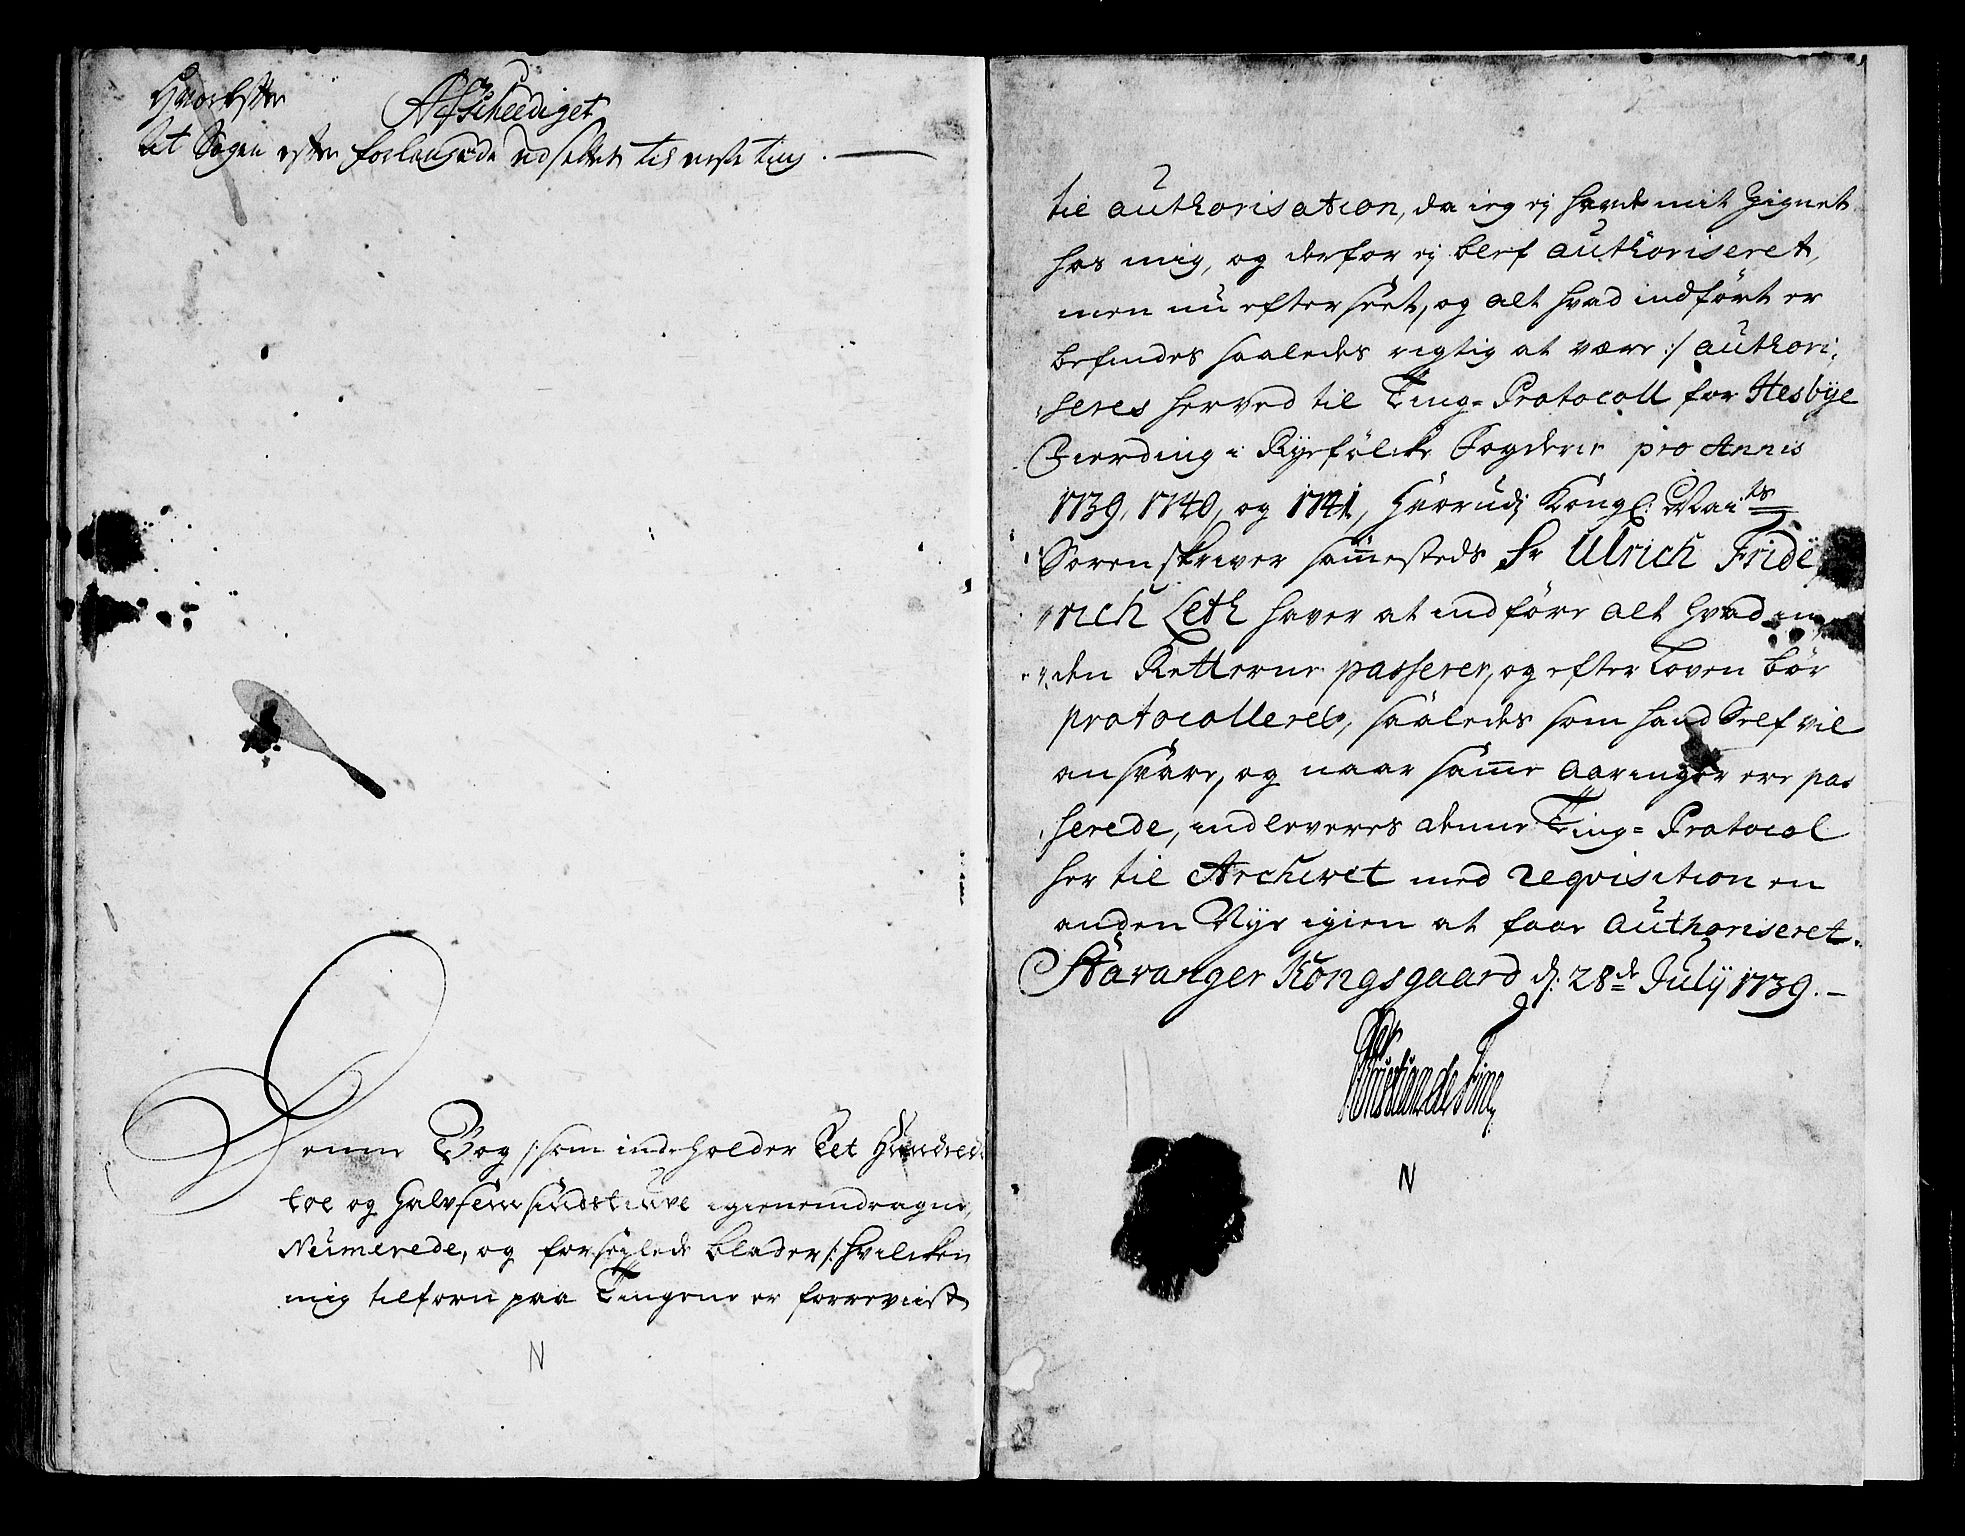 Hvorefter
Afscheediget
At Sagen efter forlangende udsettes til neste ting.
Denne Bog /: som indeholder Eet Hundrede
toe og halvfemsindstiuve igienemdragne,
Numerede, og forseglede blader /: hvilcken
mig tilforn paa Tingene er forreviist
N
til authorisation, da ieg ej havde mit Zignet
hos mig, og derfor ej blef authoriseret,
men nu efterseet, og alt hvad indført er
befindes saaledes rigtig at være :/ authori,
seres herved til Ting-Protocoll for Hesbye
Fierding i Ryefølcke Fogderie pro Annis
1739, 1740, og 1741, hvorudj Kongl: Maits
Sorenskriver sam̄esteds Sr Ulrich Fride,
rich Leth haver at indføre alt hvad in,
den Retterne passerer, og efter Loven bør
protocolleres, saaledes som hand Self vil
ansvare, og naar sam̄e aaringer ere pas
serede, indleveres denne Ting-Protocol
her til Archivet med reqvisition en
anden Nye igien at faae authoriseret.
Stavanger Kongsgaard d: 28de July 1739.
N